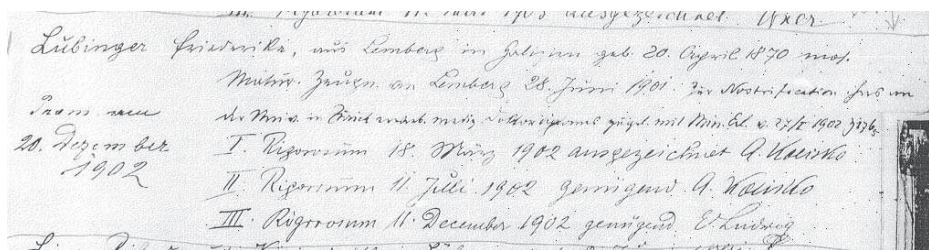 III. Rigorosum 11. 1903 ausgezeichnet.
Lübinger Friederike, aus Lemberg in Galizien geb. 20. April 1870 mos.
Matur. Zeugn. an Lemberg 28. Juni 1901. Zur Nostrification ihres an
Prom. am der Univ. in Zürich erworb. mediz. Doktordiploms zugel. mit Min. Erl. v. 27/I 1902
20. Dezember I. Rigorosum 18. März 1902 ausgezeichnet A. Kolisko
1902 II. Rigorosum 11. Juli 1902 genügend A. Kolisko
III. Rigorosum 11. December 1902 genügend E. Ludwig